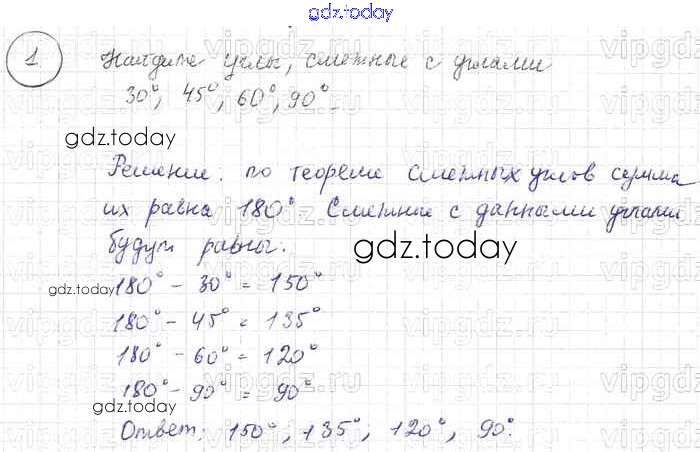 gdz.today
1 Найдите углы, смежные с углами
30°, 45°, 60°, 90°.
gdz.today
Решение: по теореме смежных углов сумма
их равна 180°. Смежные с данными углами
будут равны:
gdz.today
gdz.today
180° - 30° = 150°
180° - 45° = 135°
180° - 60° = 120°
180° - 90° = 90°
gdz.today
Ответ: 150°, 135°, 120°, 90°.